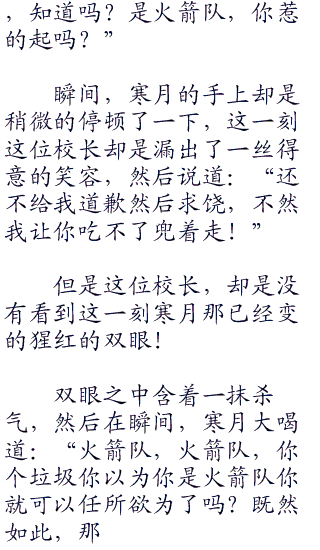 ，知道吗？是火箭队，你惹
的起吗？”
瞬间，寒月的手上却是
稍微的停顿了一下，这一刻
这位校长却是漏出了一丝得
意的笑容，然后说道：“还
不给我道歉然后求饶，不然
我让你吃不了兜着走！”
但是这位校长，却是没
有看到这一刻寒月那已经变
的猩红的双眼！
双眼之中含着一抹杀
气，然后在瞬间，寒月大喝
道：“火箭队，火箭队，你
个垃圾你以为你是火箭队你
就可以任所欲为了吗？既然
如此，那